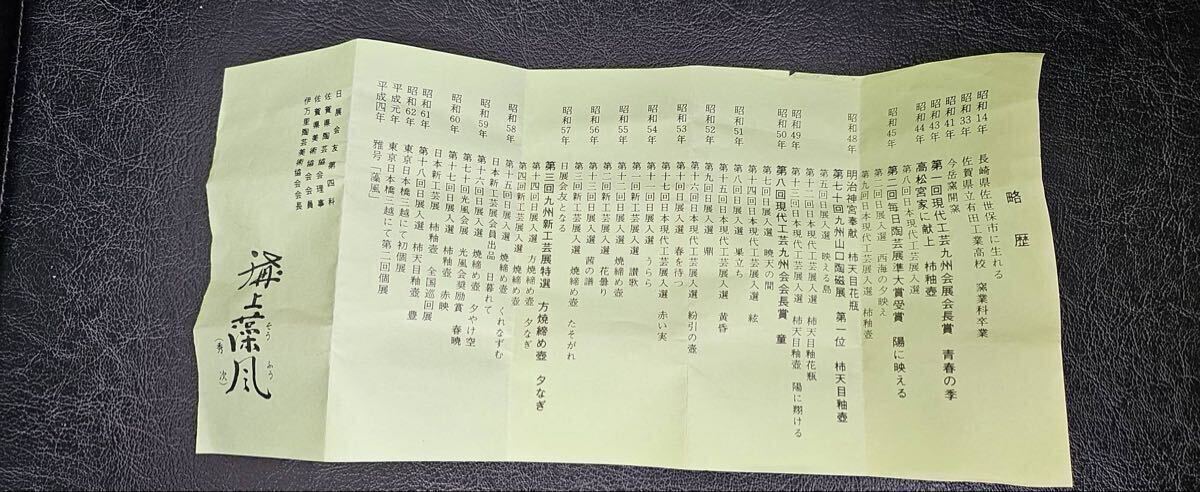 略歴
昭和14年 長崎県佐世保市に生れる
昭和33年 佐賀県立有田工業高校 窯業科卒業
昭和41年 今岳窯開窯
昭和43年 第一回現代工芸九州会展会長賞 青春の季
昭和44年 高松宮家に献上 柿釉壺
第八回日本現代工芸展入選
昭和45年 第二回毎日陶芸展準大賞受賞 陽に映える
第二回日展入選 西海の夕映え
第九回日本現代工芸展入選 柿釉壺
昭和48年 明治神宮奉献 柿天目花瓶
第七十回九州山口陶磁展 第一位 柿天目釉壺
第五回日展入選 映える島
第十二回日本現代工芸展入選 柿天目釉花瓶
昭和49年 第十三回日本現代工芸展入選 柿天目釉壺 陽に翔ける
昭和50年 第八回現代工芸九州会会長賞 童
第七回日展入選 暁天の間
第十四回日本現代工芸展入選 絃
昭和51年 第八回日展入選 巣立ち
第九回日展入選 黄昏
昭和52年 第九回日展入選 鼎
第十六回日本現代工芸展入選 粉引の壺
昭和53年 第十回日展入選 春を待つ
第十七回日本現代工芸展入選 赤い実
昭和54年 第十一回日展入選 うらら
第一回新工芸展入選 讃歌
昭和55年 第十二回日展入選 焼締め壺
第二回新工芸展入選 花曇り
昭和56年 第十三回日展入選 茜の譜
第三回新工芸展入選 焼締め壺 たそがれ
昭和57年 日展会友となる
第三回九州新工芸展特選 方焼締め壺 夕なぎ
第十四回日展入選 方焼締め壺
第四回新工芸展入選 焼締め壺 夕なぎ
昭和58年 第十五回日展入選 焼締め壺 くれなずむ
日本新工芸展会員出品 日暮れて
昭和59年 第十六回日展入選 焼締め壺 夕やけ空
第十七回光風会展 光風会奨励賞 春暁
昭和60年 第十七回日展入選 柿釉壺 赤映
日本新工芸展 柿釉壺 全国巡回展
昭和61年 第十八回日展入選 柿天目釉壺 豊
昭和62年 東京日本橋三越にて初個展
平成元年 東京日本橋三越にて第二回個展
平成四年 雅号「藻風」
日展会友 第四科
佐賀県陶芸協会理事
佐賀県美術協会会員
伊万里陶芸美術協会会長
上藻風
そう ふう
(秀次)